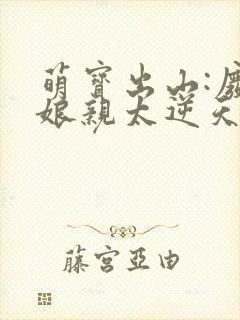 萌寶出山:
娘親太逆天
藤宮亞由